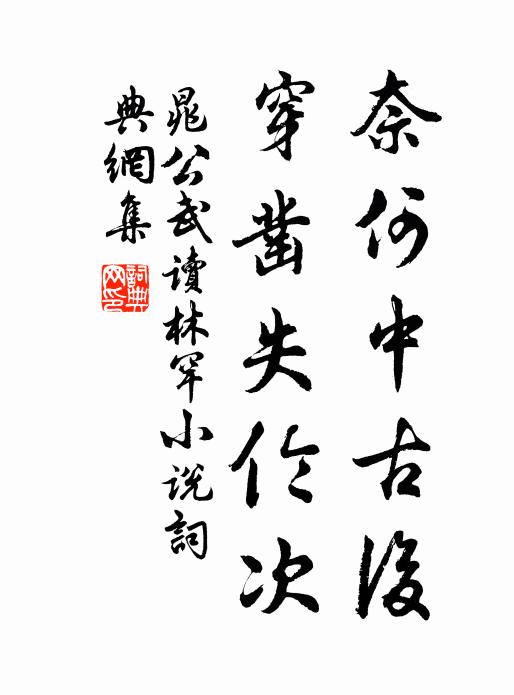 奈何中古後
穿凿失伦次
晁公武讀林罕小說詞
典網集
詞典
网印